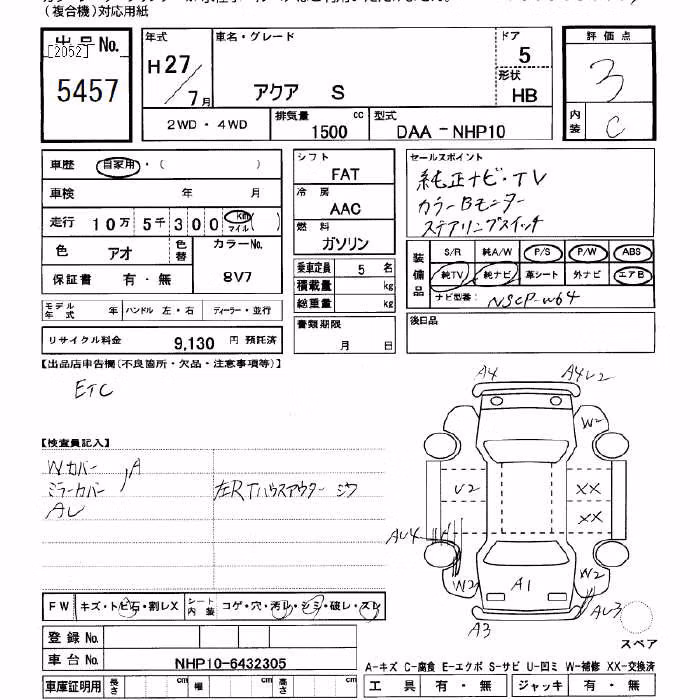 (複合機)対応用紙
出品No.
[2052]
5457
年式
H27/7月
車名・グレード
アクア S
ドア
5
形状
HB
評価点
3
内装
C
2WD・4WD
排気量 cc
1500
型式
DAA-NHP10
車歴 自家用・( )
車検 年 月
走行 10万5千300 Km マイル ( )
色 アオ
色替
カラーNo.
8V7
保証書 有・無
モデル年式 年 ハンドル 左・右 ディーラー・並行
リサイクル料金 9,130 円 預託済
シフト
FAT
冷房
AAC
燃料
ガソリン
乗車定員 5 名
積載量 kg
総重量 kg
書類期限
月 日
セールスポイント
純正ナビ・TV
カラーBモニター
ステアリングスイッチ
装備品
S/R 純A/W P/S P/W ABS
純TV 純ナビ 革シート 外ナビ エアB
ナビ型番: NSCP-W64
後日品
【出品店申告欄(不良箇所・欠品・注意事項等)】
ETC
【検査員記入】
Wカバー
ミラーカバー 、A
AU
左RTハウスアウター シワ
A4 A4U2
W2
U2 XX
XX
AU4 A
W2 A1 W2
A3 AU3
スペア
FW キズ・トビ石・割レX シート内装 コゲ・穴・汚レ・シミ・破レ・スレ
登録No.
車台No. NHP10-6432305
車庫証明用 長さ cm 幅 cm 高さ cm
A-キズ C-腐食 E-エクボ S-サビ U-凹ミ W-補修 XX-交換済
工具 有・無 ジャッキ 有・無